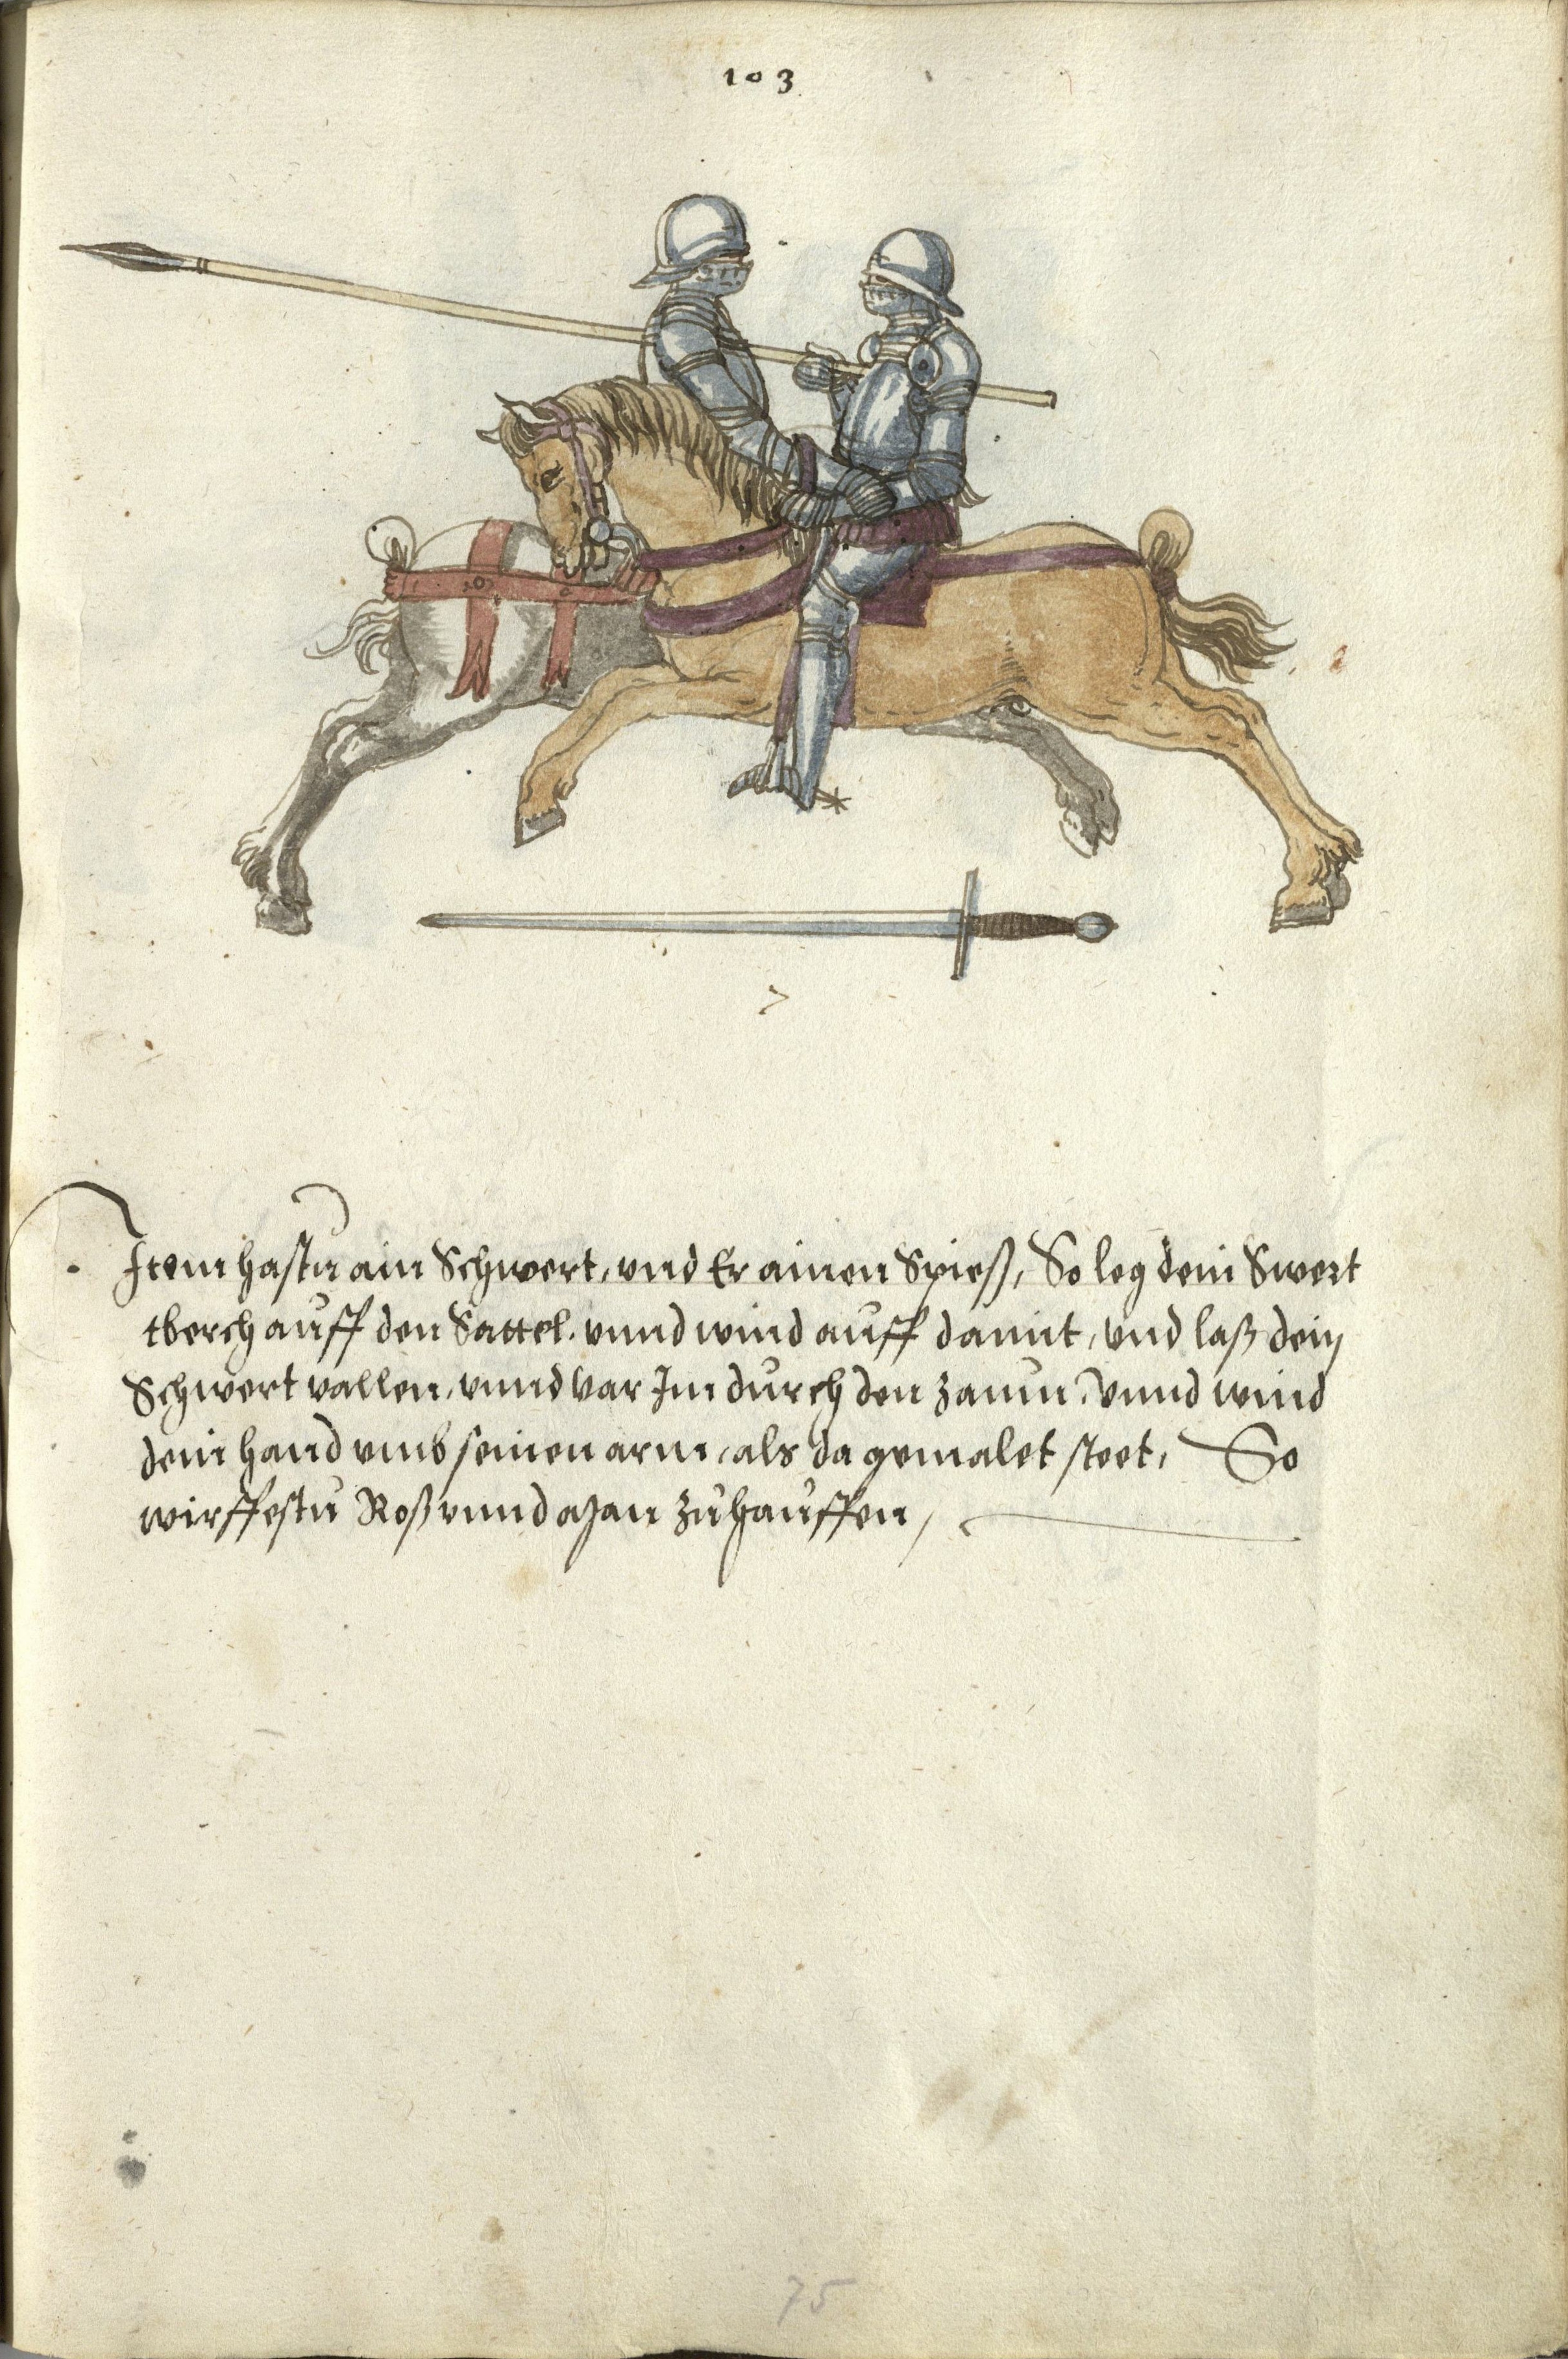 103
Item hastu ain Schwert, und Er ainen Spieß, So leg dein Swert
tberch auff den Sattel. unnd wind auff damit, und laß dein
Schwert vallen, unnd var Im durch den zaum, Vnnd wind
dein hand umb seinen arm, als da gemalet steet, So
wirffestu Roß unnd Man zuhauffen,
75